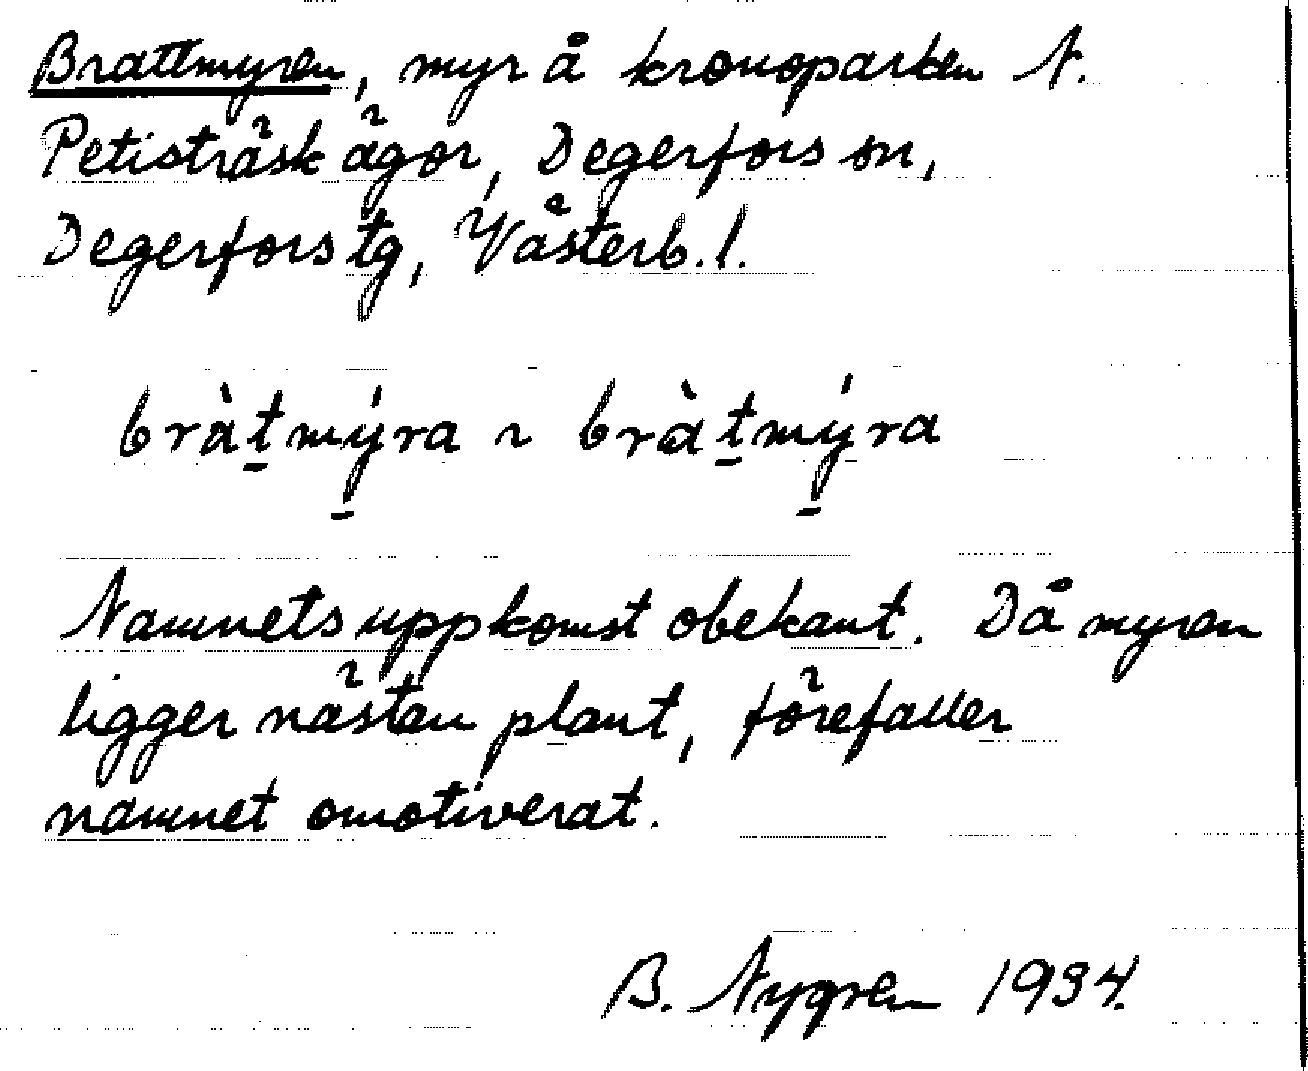 Brattmyren, myr å kronoparken N.
Petisträsk ägor, Degerfors sn,
Degerfors tg, Västerb. l.
bràt̠mý̠ra ~ bràt̠mý̠ra
Namnets uppkomst obekant. Då myren
ligger nästan plant, förefaller
namnet omotiverat.
B. Nygren 1934.